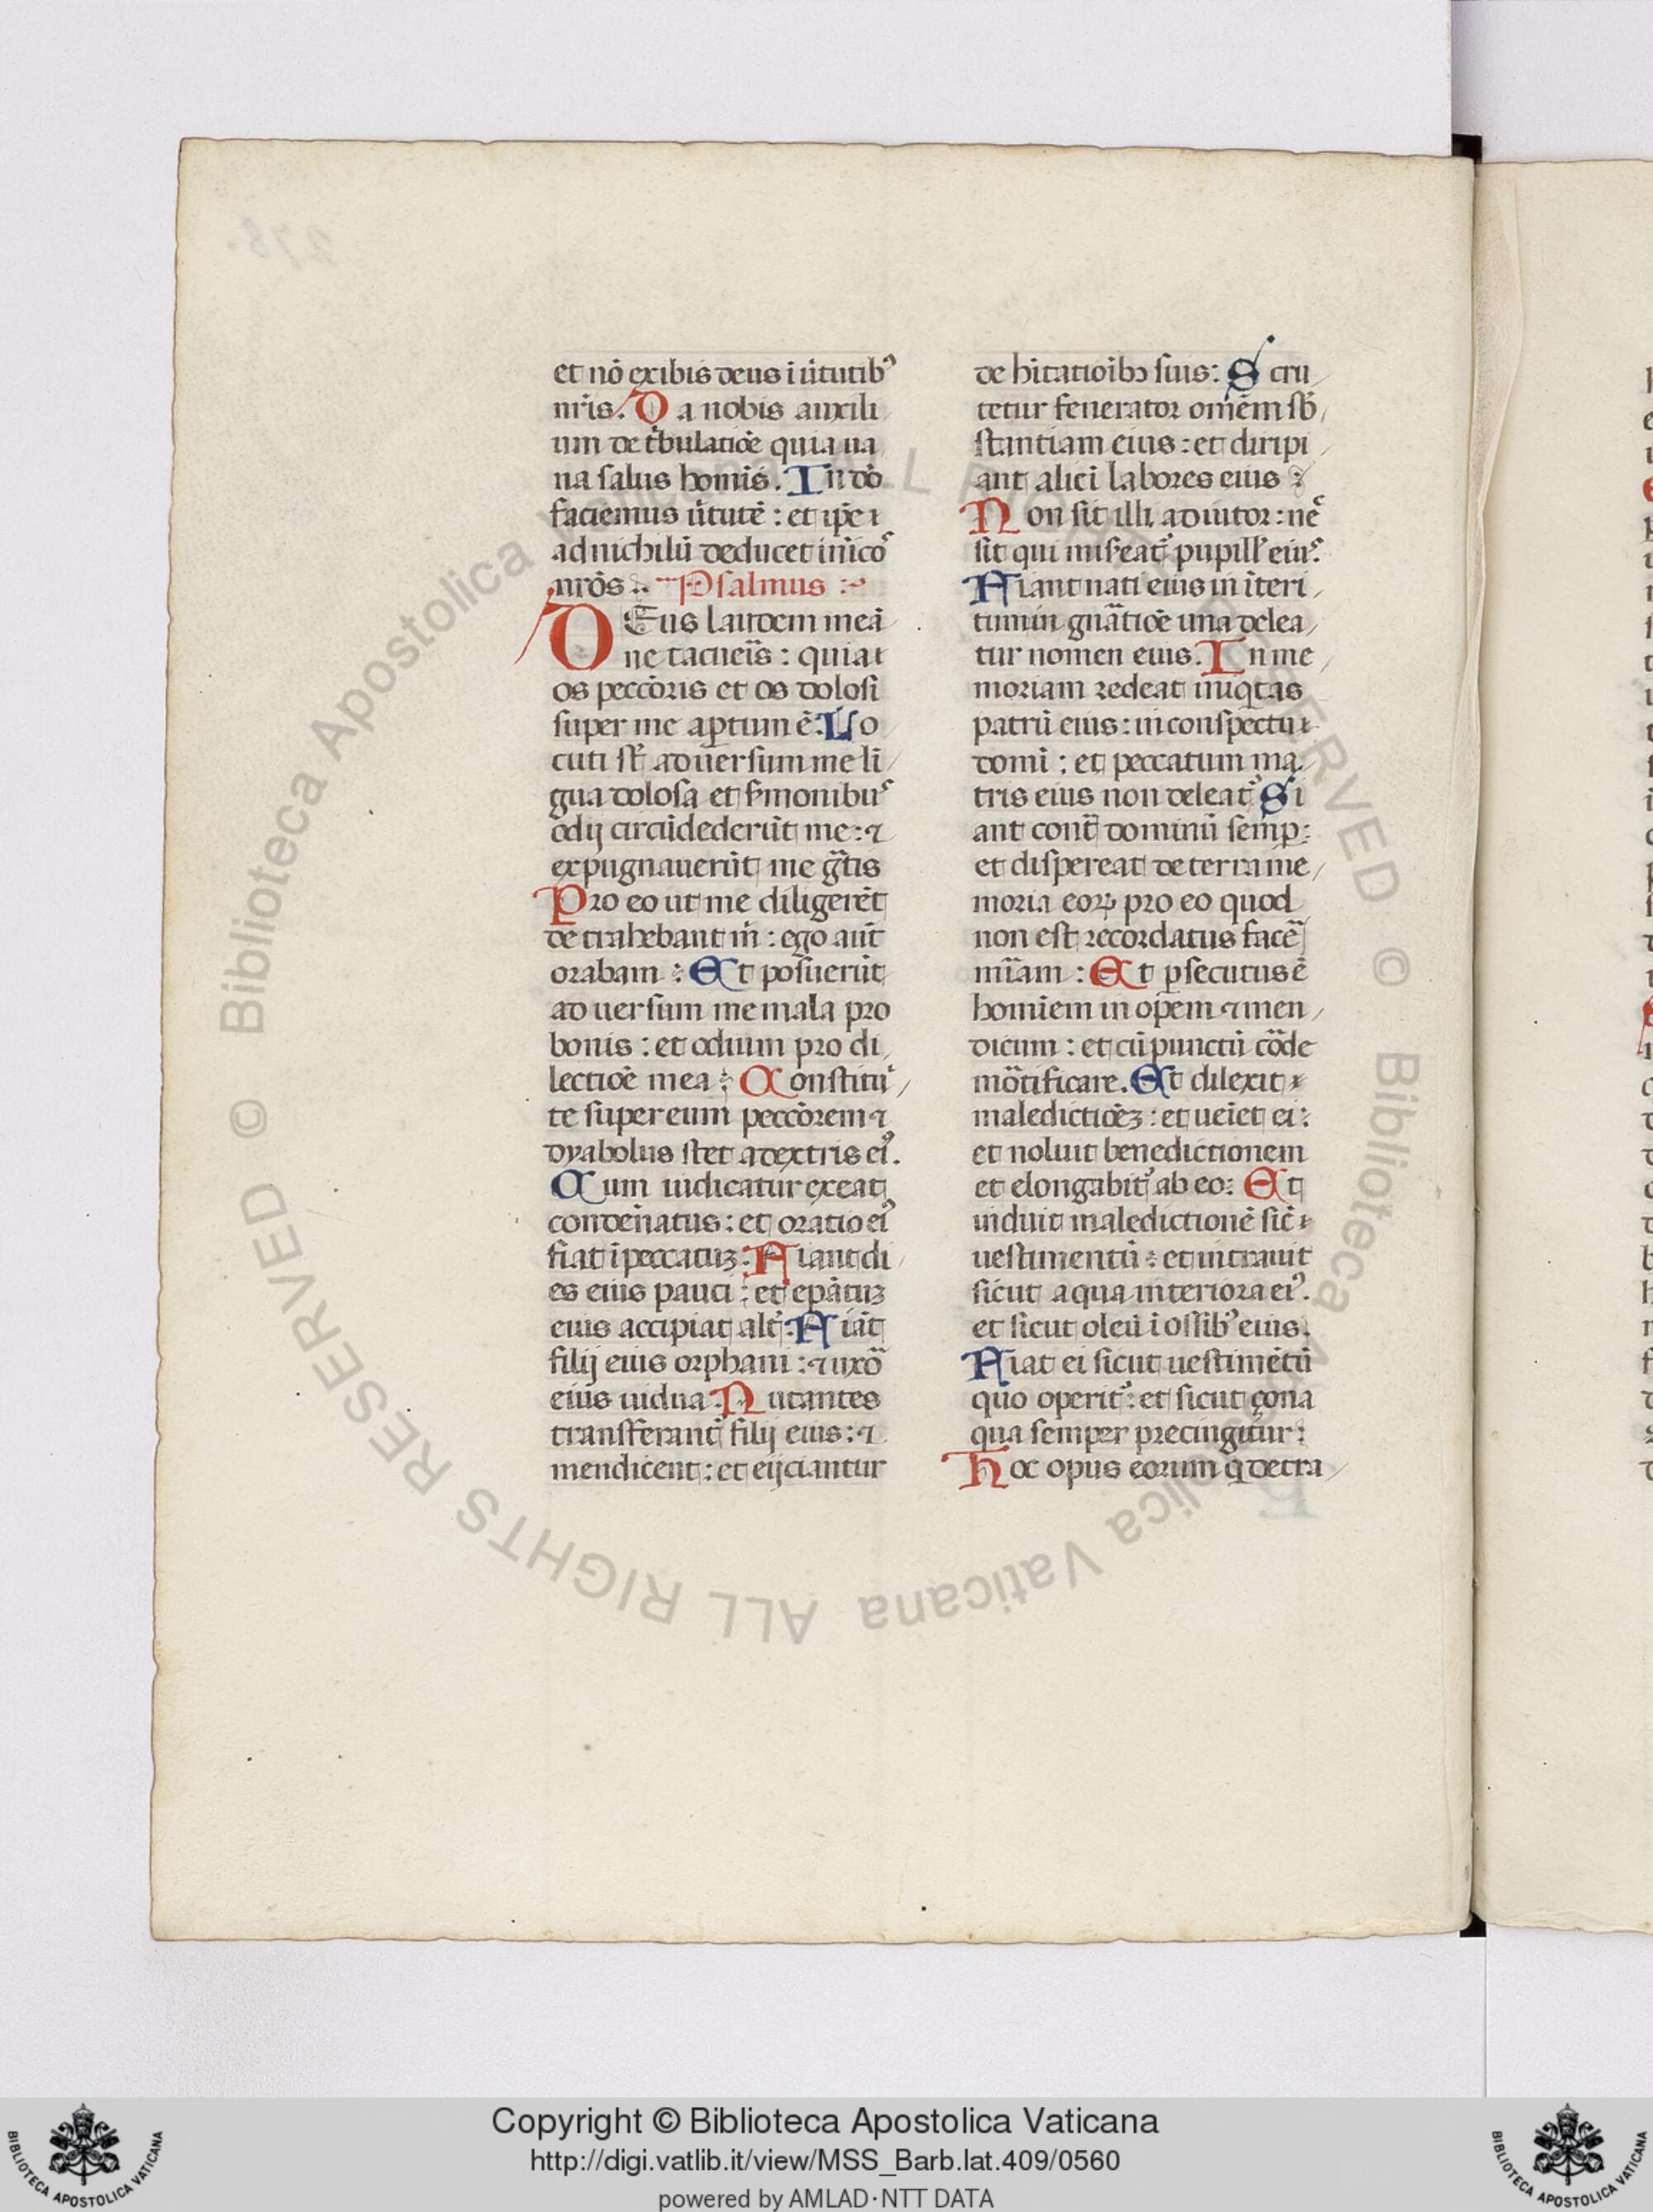 et nō exibis deus i ūtutibꝰ
nr̄is. Da nobis auxili
um de tͥbulatiōe quia ua
na salus homīs. In dō
faciemus ūtutē : et ip̄e ⁊
ad nichilū deducet inīcoˢ
nrōs :. Psalmus :
DEus laudem meā
ne tacueīs : quia ⁊
os peccōris et os dolosi
super me aꝑtum ē. Lo
cuti st̄ aduersum me li
gua dolosa et s̄monibuˢ
odij circūdederūt me : ⁊
expugnauerūt me gͣtis
Pro eo ut me diligerēt
detrahebant m̄ : ego aūt
orabam : Et posuerūt
aduersum me mala pro
bonis : et odium pro di
lectiōe mea : Constitu
te super eum peccōrem ⁊
dyabolus stet a dextris eiꝰ.
Cum iudicatur exeat
condēnatus : et oratio eiꝰ
fiat i peccatuꝫ : Fiant di
es eius pauci : et ep̄atuꝫ
eius accipiat alt̄ : Fiāt
filij eius orphani : ⁊ uxoͣ
eius uidua : Nutantes
transferant᷑ filij eius : ⁊
mendicent : et eijciantur
de hītatioībꝫ suis : Scru
tetur fenerator omēm sb̄
stantiam eius : et diripi
ant alieī labores eius :
Non sit illi adiutor : nēͨ
sit qui mis̄eat᷑ pupill' eiuˢ.
Fiant nati eius in īteri
tum in gnātiōe una delea
tur nomen eius. In me
moriam redeat iniqͥtas
patrū eius : in conspectu ⁊
domī : et peccatum ma
tris eius non deleat᷑ Si
ant contͣ dominū semꝑ :
et dispereat de terra me
moria eoꝝ pro eo quod
non est recordatus facē
mīam : Et ꝑsecutus ē
homīem inopem ⁊ men
dicum : et cūpunctū coͣde
moͣtificare. Et dilexit ⁊
maledictiōeꝫ : et ueīet ei :
et noluit benedictionem
et elongabit᷑ ab eo : Et
induit maledictionē siē ⁊
uestimentū : et intrauit
sicut aqua interiora eiꝰ.
et sicut oleū i ossibꝰ eius.
Fiat ei sicut uestimētū
quo operit᷑ : et sicut çona
qua semper precingitur :
Hoc opus eorum ꝗ detra
Copyright © Biblioteca Apostolica Vaticana
http://digi.vatlib.it/view/MSS_Barb.lat.409/0560
powered by AMLAD·NTT DATA
© Biblioteca Apostolica Vaticana ALL RIGHTS RESERVED © Biblioteca Apostolica Vaticana ALL RIGHTS RESERVED
BIBLIOTECA APOSTOLICA VATICANA
BIBLIOTECA APOSTOLICA VATICANA